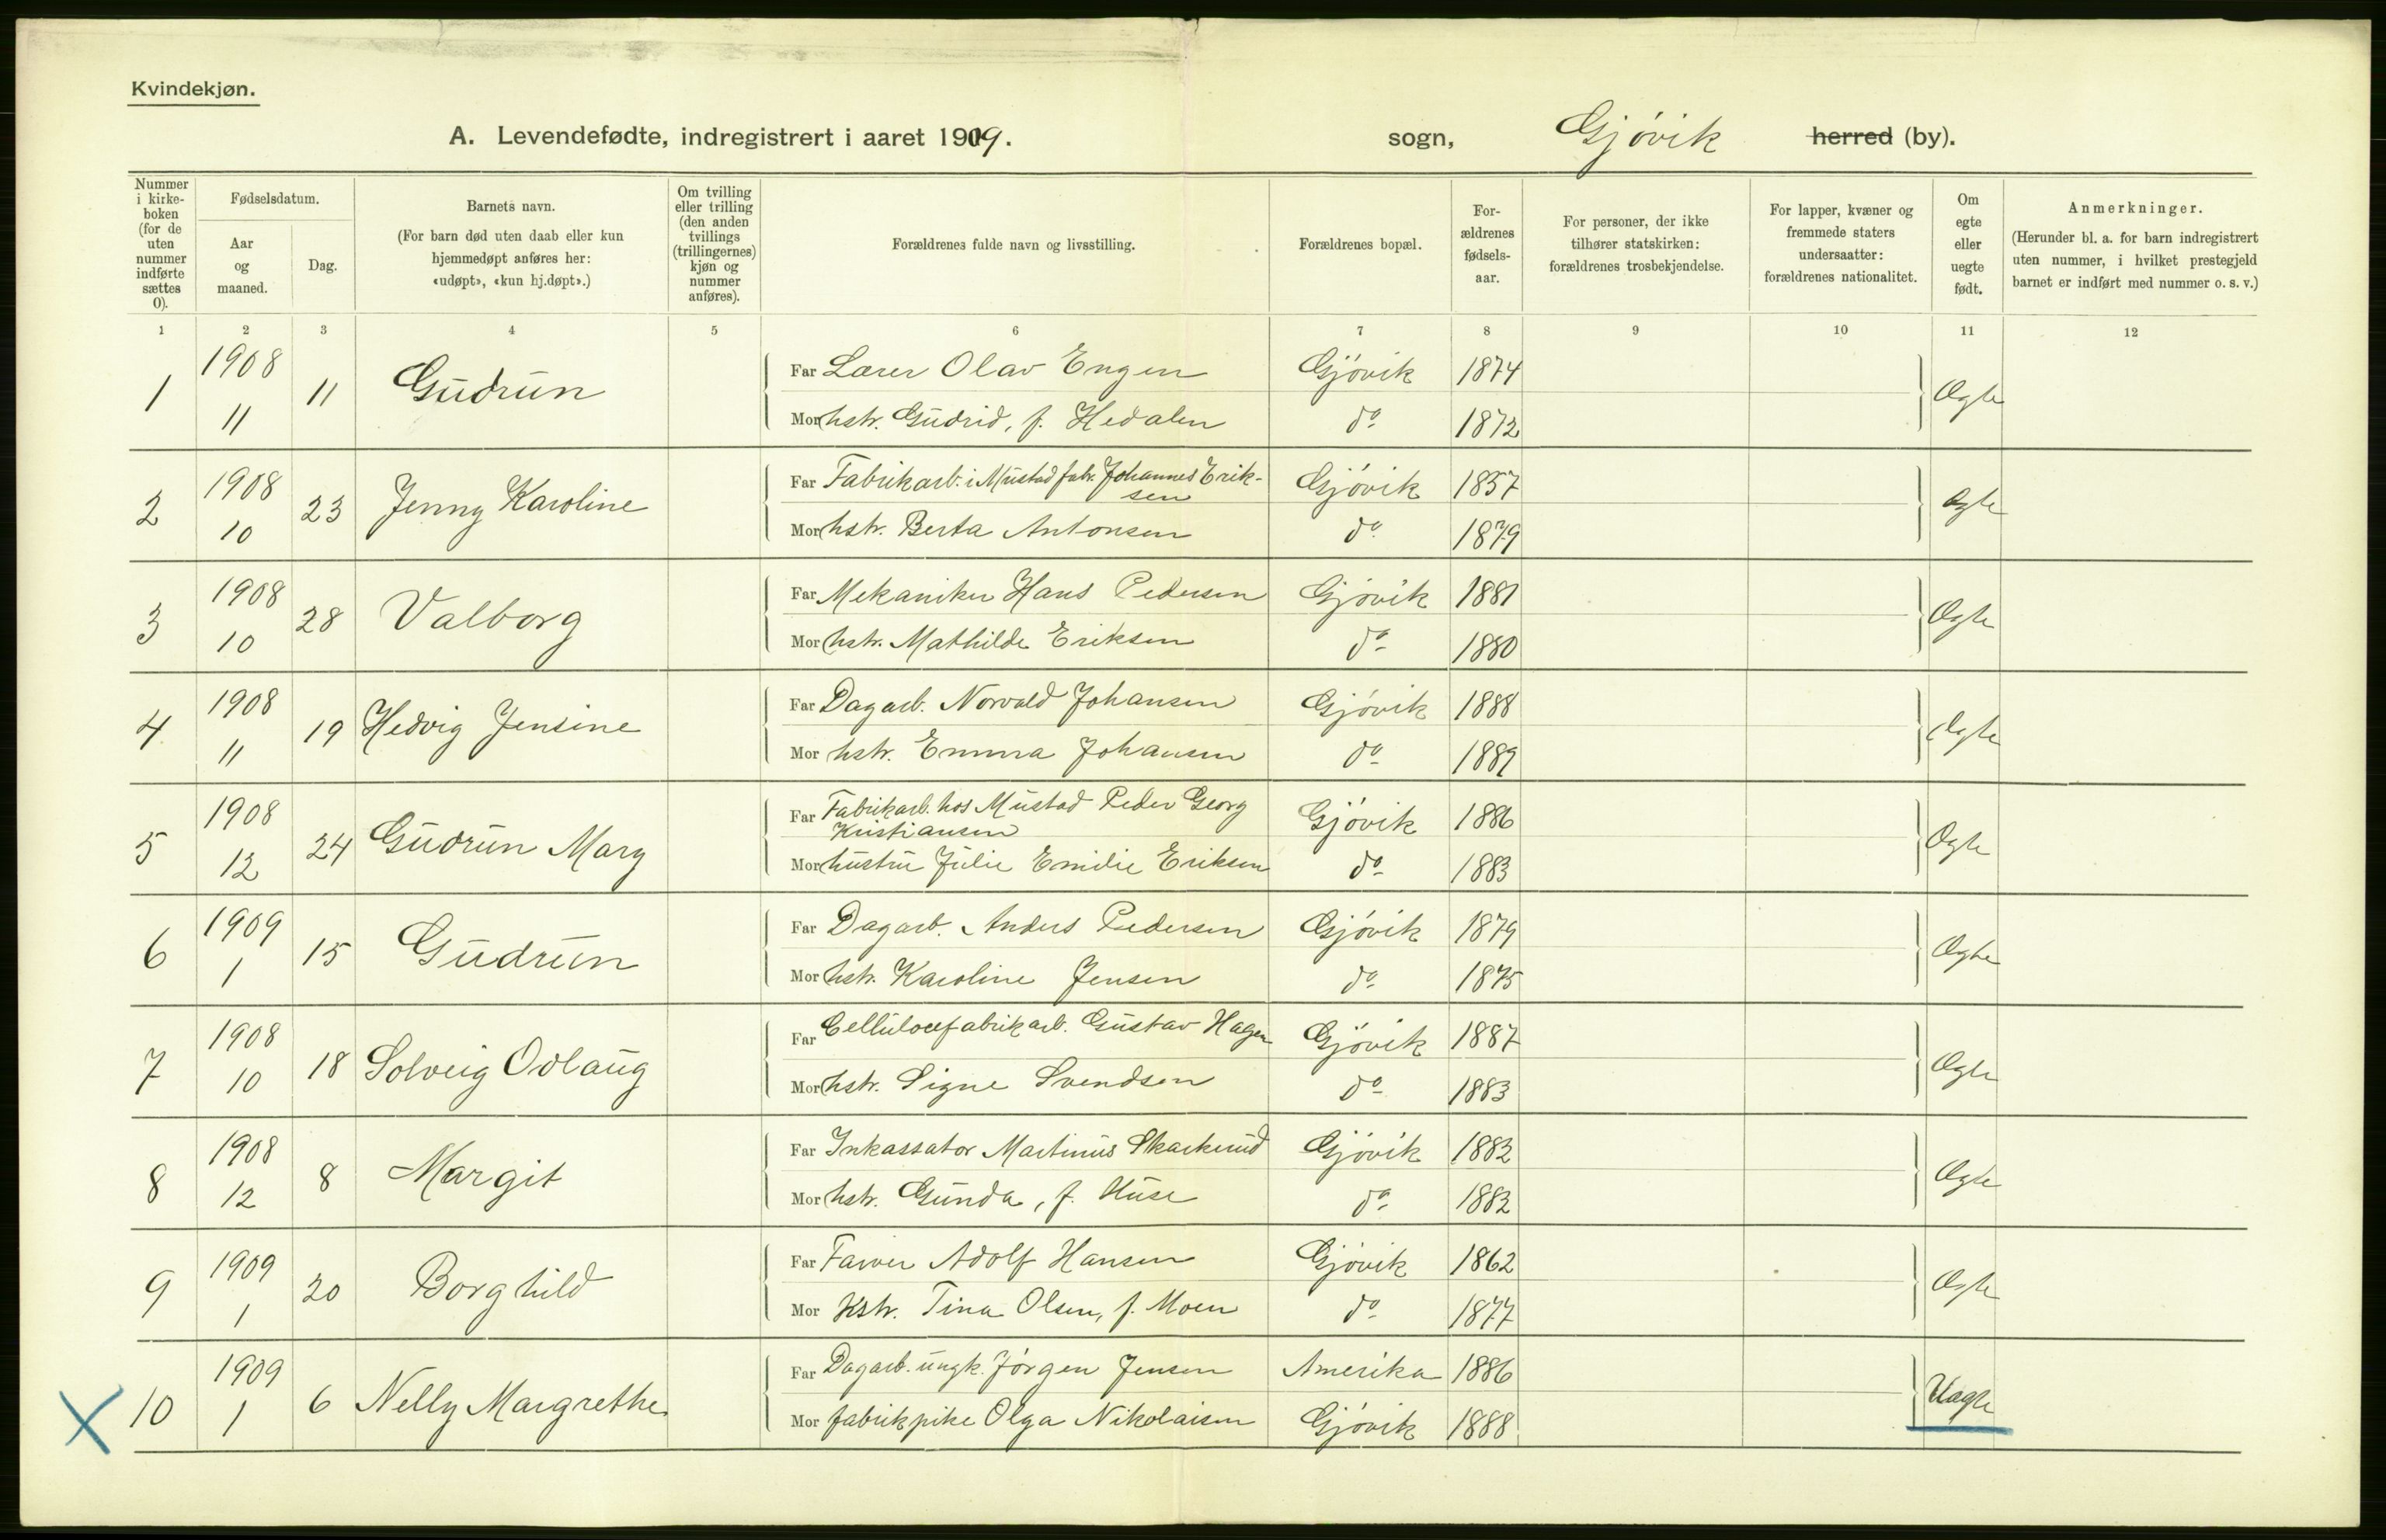 Kvindekjøn.
A. Levendefødte, indregistrert i aaret 1909. sogn, Gjövik herred (by).
Nummer i kirke-boken (for de uten nummer indførte sættes 0).
Fødselsdatum.
Aar og maaned.
Dag.
Barnets navn.
(For barn død uten daab eller kun hjemmedøpt anføres her: «udøpt», «kun hj.døpt».)
Om tvilling eller trilling (den anden tvillings (trillingernes) kjøn og nummer anføres).
Forældrenes fulde navn og livsstilling.
Forældrenes bopæl.
For-ældrenes fødsels-aar.
For personer, der ikke tilhører statskirken: forældrenes trosbekjendelse.
For lapper, kvæner og fremmede staters undersaatter: forældrenes nationalitet.
Om egte eller uegte født.
Anmerkninger.
(Herunder bl. a. for barn indregistrert uten nummer, i hvilket prestegjeld barnet er indført med nummer o. s. v.)
1 2 3 4 5 6 7 8 9 10 11 12
1 1908 11 11 Gudrun
Far Lærer Olav Engen Gjövik 1874
Mor hstr. Gudrid, f. Hedalen do 1872
Ægte
2 1908 10 23 Jenny Karoline
Far Fabrikarb. i Mustad fabr. Johannes Erik-
sen Gjövik 1857
Mor hstr. Berta Antonsen do 1879
Ægte
3 1908 10 28 Valborg
Far Mekaniker Hans Pedersen Gjövik 1881
Mor hstr. Mathilde Eriksen do 1880
Ægte
4 1908 11 19 Hedvig Jensine
Far Dagarb. Norvald Johansen Gjövik 1888
Mor hstr. Emma Johansen do 1889
Ægte
5 1908 12 24 Gudrun Mary
Far Fabrikarb. hos Mustad Peder Georg
Kristiansen Gjövik 1886
Mor hustru Julie Emilie Eriksen do 1883
Ægte
6 1909 1 15 Gudrun
Far Dagarb. Anders Pedersen Gjövik 1879
Mor hstr. Karoline Jensen do 1875
Ægte
7 1908 10 18 Solveig Odlaug
Far Cellulosefabrikarb. Gustav Hagen Gjövik 1887
Mor hstr. Signe Svendsen do 1883
Ægte
8 1908 12 8 Margit
Far Inkassator Martinus Skarkerud Gjövik 1882
Mor hstr. Gunda, f. Huse do 1882
Ægte
9 1909 1 20 Borghild
Far Farver Adolf Hansen Gjövik 1862
Mor Hstr. Tina Olsen, f. Moen do 1877
Ægte
X 10 1909 1 6 Nelly Margrethe
Far Dagarb. ungk. Jörgen Jensen Amerika 1886
Mor fabrikpike Olga Nikolaisen Gjövik 1888
Uægte